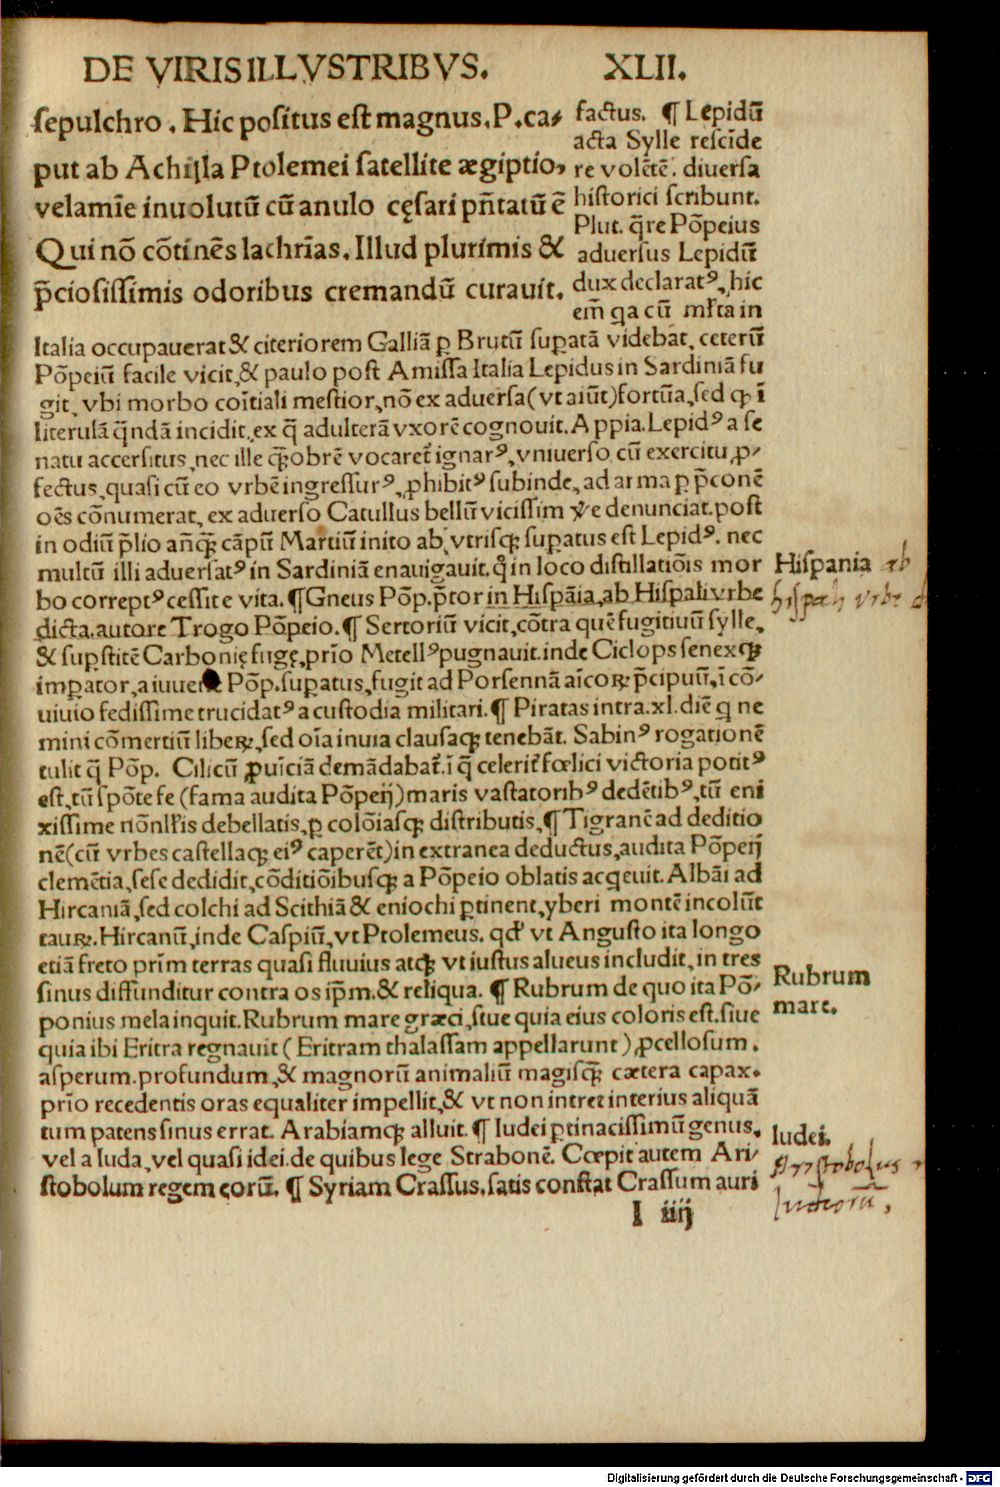 DE VIRIS ILLVSTRIBVS. XLII.
sepulchro . Hic positus est magnus. P. ca⸗
put ab Achilla Ptolemei satellite ægiptio,
velamīe inuolutū cū anulo cęsari pñtatū ē
Qui nō cōtinēs lachrīas. Illud plurimis &
p̄ciosissimis odoribus cremandū curauit.
factus. ¶ Lepidū
acta Sylle rescīde
re volētē. diuersa
historici scribunt.
Plut. q̄re Pōpeius
aduersus Lepidū
dux declaratꝰ, hic
em̄ qa cū mr̄ta in
Italia occupauerat & citeriorem Galliā ꝑ Brutū supatā videbat, ceterū
Pōpeiū facile vicit, & paulo post Amissa Italia Lepidus in Sardiniā fu
git, vbi morbo coītiali mestior, nō ex aduersa (vt aiūt) fortūa, sed ꝙ ī
literulā q̄ndā incidit, ex q̄ adulterā vxorē cognouit. Appia. Lepidꝰ a se
natu accersitus, nec ille q̄obrē vocaret̄ ignarꝰ, vniuerso cū exercitu, ꝓ⸗
fectus, quasi cū eo vrbē ingressurꝰ, ꝓhibitꝰ subinde, ad arma ꝑ p̄conē
oēs cōnumerat, ex aduerso Catullus bellū vicissim ve denunciat. post
in odiū p̄lio añq̄ cāpū Martiū inito ab vtrisqꝫ supatus est Lepidꝰ. nec
multū illi aduersatꝰ in Sardiniā enauigauit. q̄ in loco distillatiōis mor
bo correptꝰ cessit e vita. ¶ Gneus Pōp. p̄tor in Hispāia, ab Hispali vrbe
dicta. autore Trogo Pōpeio. ¶ Sertoriū vicit, cōtra quē fugitiuū sylle,
& supstitē Carbonię fugę, prīo Metellꝰ pugnauit. inde Ciclops senexqꝫ
impator, a iuuene Pōp. supatus, fugit ad Porsennā aīcoꝝ p̄cipuū, ī cō⸗
uiuio fedissime trucidatꝰ a custodia militari. ¶ Piratas intra. xl. diē q ne
mini cōmertiū libeꝝ, sed oīa inuia clausaqꝫ tenebāt. Sabinꝰ rogationē
tulit q̄ Pōp. Cilicū ꝓuīciā demādabat̄. ī q̄ celerit̄ fœlici victoria potitꝰ
est, tū spōte se (fama audita Pōpeij) maris vastatoribꝰ dedētibꝰ, tū eni
xissime nōnłłis debellatis, ꝑ colōiasqꝫ distributis, ¶ Tigranē ad deditio
nē (cū vrbes castellaqꝫ eiꝰ caperēt) in extranea deductus, audita Pōpeij
clemētia, sese dedidit, cōditiōibusqꝫ a Pōpeio oblatis acqeuit. Albāi ad
Hircaniā, sed colchi ad Scithiā & eniochi ꝑtinent, yberi montē incolūt
tauꝝ. Hircanū, inde Caspiū, vt Ptolemeus. qd' vt Angusto ita longo
etiā freto prīm terras quasi fluuius atqꝫ vt iustus alueus includit, in tres
sinus diffunditur contra os ip̄m. & reliqua. ¶ Rubrum de quo ita Pō⸗
ponius mela inquit. Rubrum mare græci, siue quia eius coloris est. siue
quia ibi Eritra regnauit ( Eritram thalassam appellarunt ), ꝓcellosum .
asperum. profundum, & magnorū animaliū magisqꝫ cætera capax.
prīo recedentis oras equaliter impellit, & vt non intret interius aliquā
tum patens sinus errat. Arabiamqꝫ alluit. ¶ Iudei ꝑtinacissimū genus,
vel a Iuda, vel quasi idei. de quibus lege Strabonē. Cœpit autem Ari⸗
stobolum regem eorū. ¶ Syriam Crassus. satis constat Crassum auri
I iiij
Hispania ab
hispali vrbe
Rubrum
mare.
Iudei.
Arystobolus
Iudeorū,
Digitalisierung gefördert durch die Deutsche Forschungsgemeinschaft - DFG